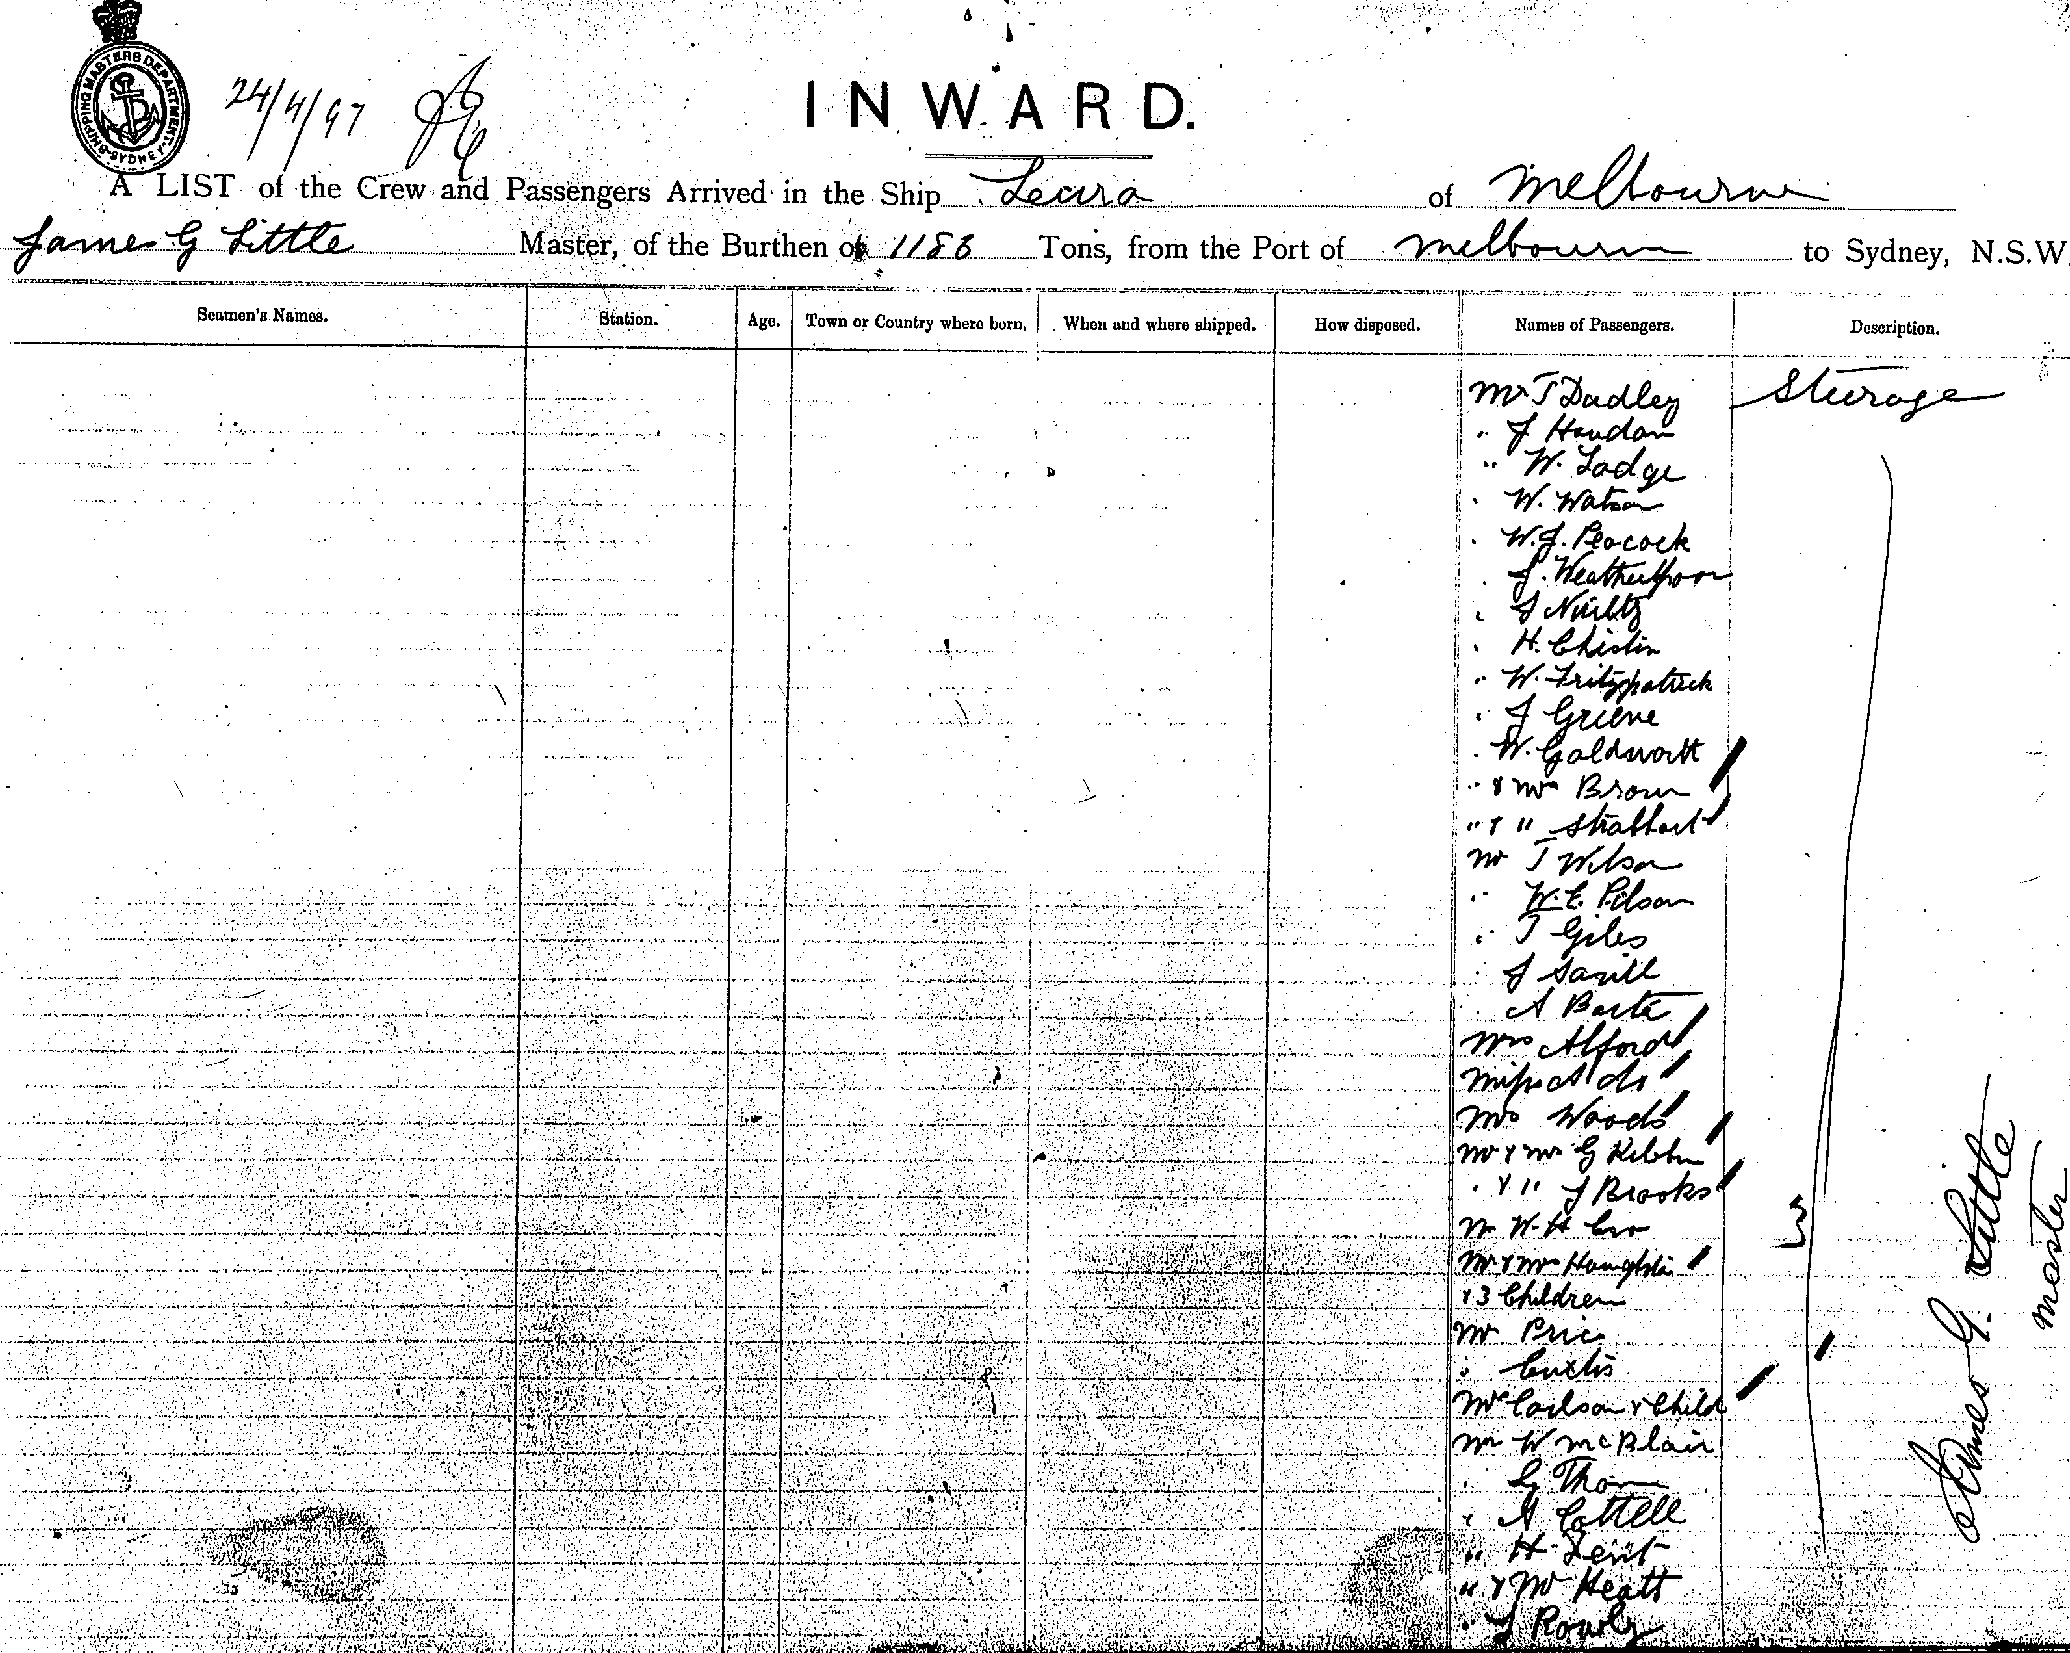 SHIPPING MASTERS DEPARTMENT. SYDNEY.
24/4/97
INWARD.
A LIST of the Crew and Passengers Arrived in the Ship Leura of Melbourne
James G Little Master, of the Burthen of 1186 Tons, from the Port of Melbourne to Sydney, N.S.W.
Seamen's Names. Station. Age. Town or Country where born. When and where shipped. How disposed. Names of Passengers. Description.
Mr T Dudley Steerage
" J
" W. Lodge
" W. Watson
" W. J. Peacock
" J. Weatherspoon
" J
" H.
" W. Fritzpatrick
" J Grieve
" W. Goldswortt
" & Mrs Brown
" & "
Mr T Wilson
" W. E. Pilson
" T Giles
" J Savill
A
Mrs Alford
Miss A do
Mrs Woods
Mr & Mrs G
" & " J Brooks
Mr W. H
Mr & Mrs
& 3 Children
Mr Price
" Curtis
Carlson & Child
Mr W McBlair
" G Thom
" A Cottell
" H.
" & Mr Heatt
" J Rowly
James G. Little
master